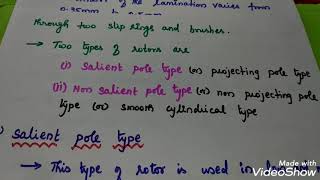 of the lamination varies from
0.35mm to 0.5mm
through two slip rings and brushes.
→ Two types of rotors are
(i) Salient pole type (or) projecting pole type
(ii) Non salient pole type (or) non projecting pole
type (or) smooth cylindrical type
salient pole type
→ This type of rotor is used in
Made with
VideoShow